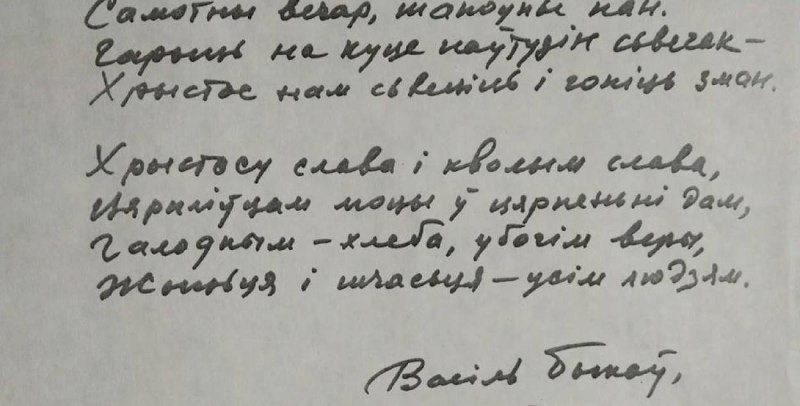 Самотны вечар, шаноўны пан.
Гарыць на куце паўтузін сьвечак –
Хрыстос нам сьвеціць і гоніць зман.
Хрыстосу слава і кволым слава,
Цярпліўцам моцы ў цярпеньні дам,
Галодным – хлеба, убогім веры,
Жыцьця і шчасьця – усім людзям.
Васіль Быкаў,